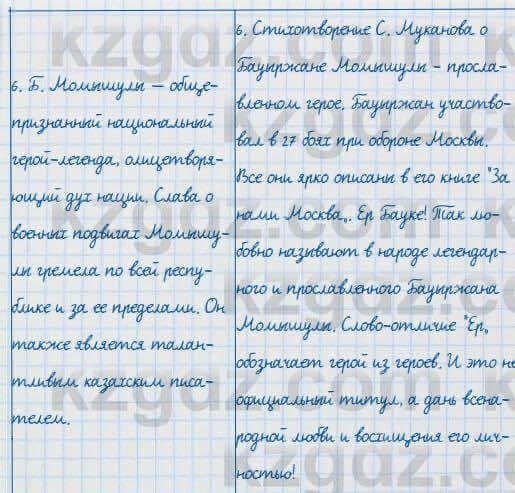 6. Б. Момышулы — обще-
признанный национальный
герой-легенда, олицетворя-
ющий дух нации. Слава о
военных подвигах Момышу-
лы гремела по всей респу-
блике и за ее пределами. Он
также является талан-
тливым казахским писа-
телем.
6. Стихотворение С. Муканова о
Бауыржане Момышулы – просла-
вленном герое. Бауыржан участво-
вал в 27 боях при обороне Москвы.
Все они ярко описаны в его книге "За
нами Москва„. Ер Бауке! Так лю-
бовно называют в народе легендар-
ного и прославленного Бауыржана
Момышулы. Слово-отличие "Ер„
обозначает герой из героев. И это не
официальный титул, а дань всена-
родной любви и восхищения его лич-
ностью!
kzgdz.com